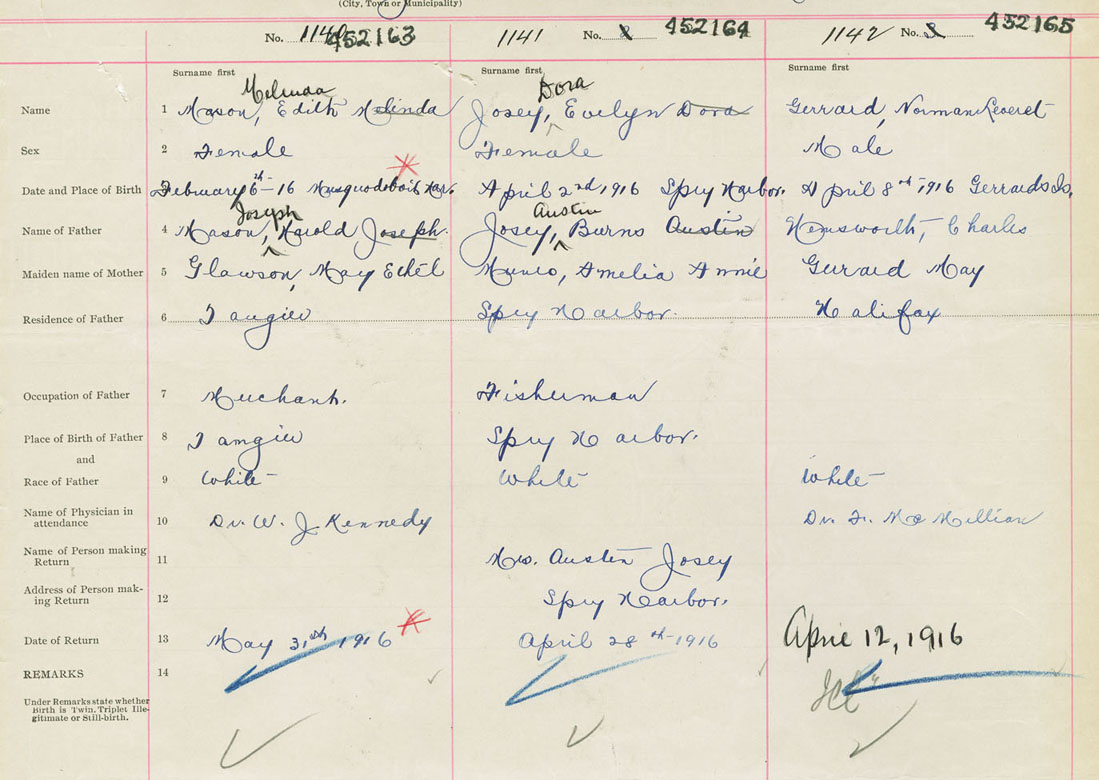 (City, Town or Municipality)
No. 1140 452163 1141 No. 2 452164 1142 No. 3 452165
Surname first Surname first Surname first
Melinda Dora
Name 1 Mason, Edith Melinda Josey, Evelyn Dora Gerrard, Norman Leveret
Sex 2 Female Female Male
Date and Place of Birth 3 February 6th-16 Musquodoboit Har. April 2nd 1916 Spry Harbor. April 8th 1916 Gerrards Is.
Joseph Austin
Name of Father 4 Mason, Harold Joseph. Josey, Burns Austin Hemsworth, Charles
Maiden name of Mother 5 Glawson, May Ethel Munro, Amelia Annie Gerrard May
Residence of Father 6 Tangier Spry Harbor. Halifax
Occupation of Father 7 Merchant. Fisherman
Place of Birth of Father 8 Tangier Spry Harbor.
and
Race of Father 9 White White White
Name of Physician in
attendance 10 Dr. W. J. Kennedy Dr. F. McMillian
Name of Person making
Return 11 Mrs. Austin Josey
Address of Person mak-
ing Return 12 Spry Harbor.
Date of Return 13 May 31st 1916 April 28th-1916 April 12, 1916
REMARKS 14
Under Remarks state whether
Birth is Twin. Triplet Ille-
gitimate or Still-birth.